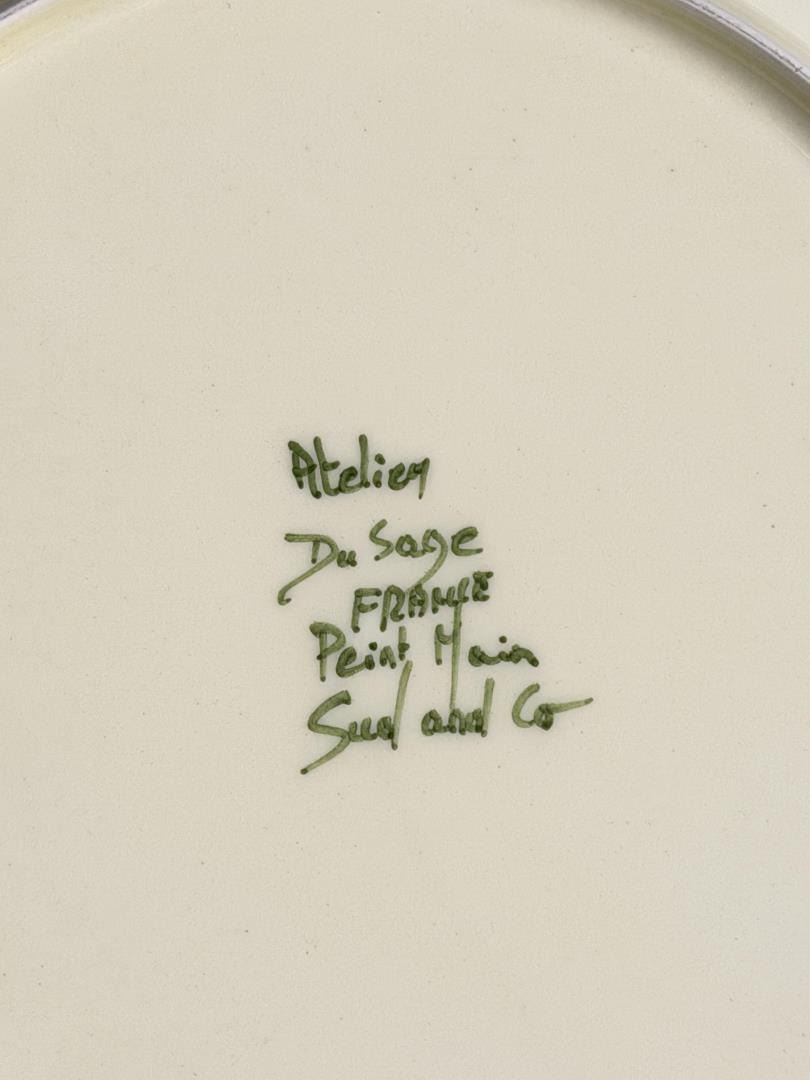 Atelier
Du Sage
FRANCE
Peint Main
Sud and Co